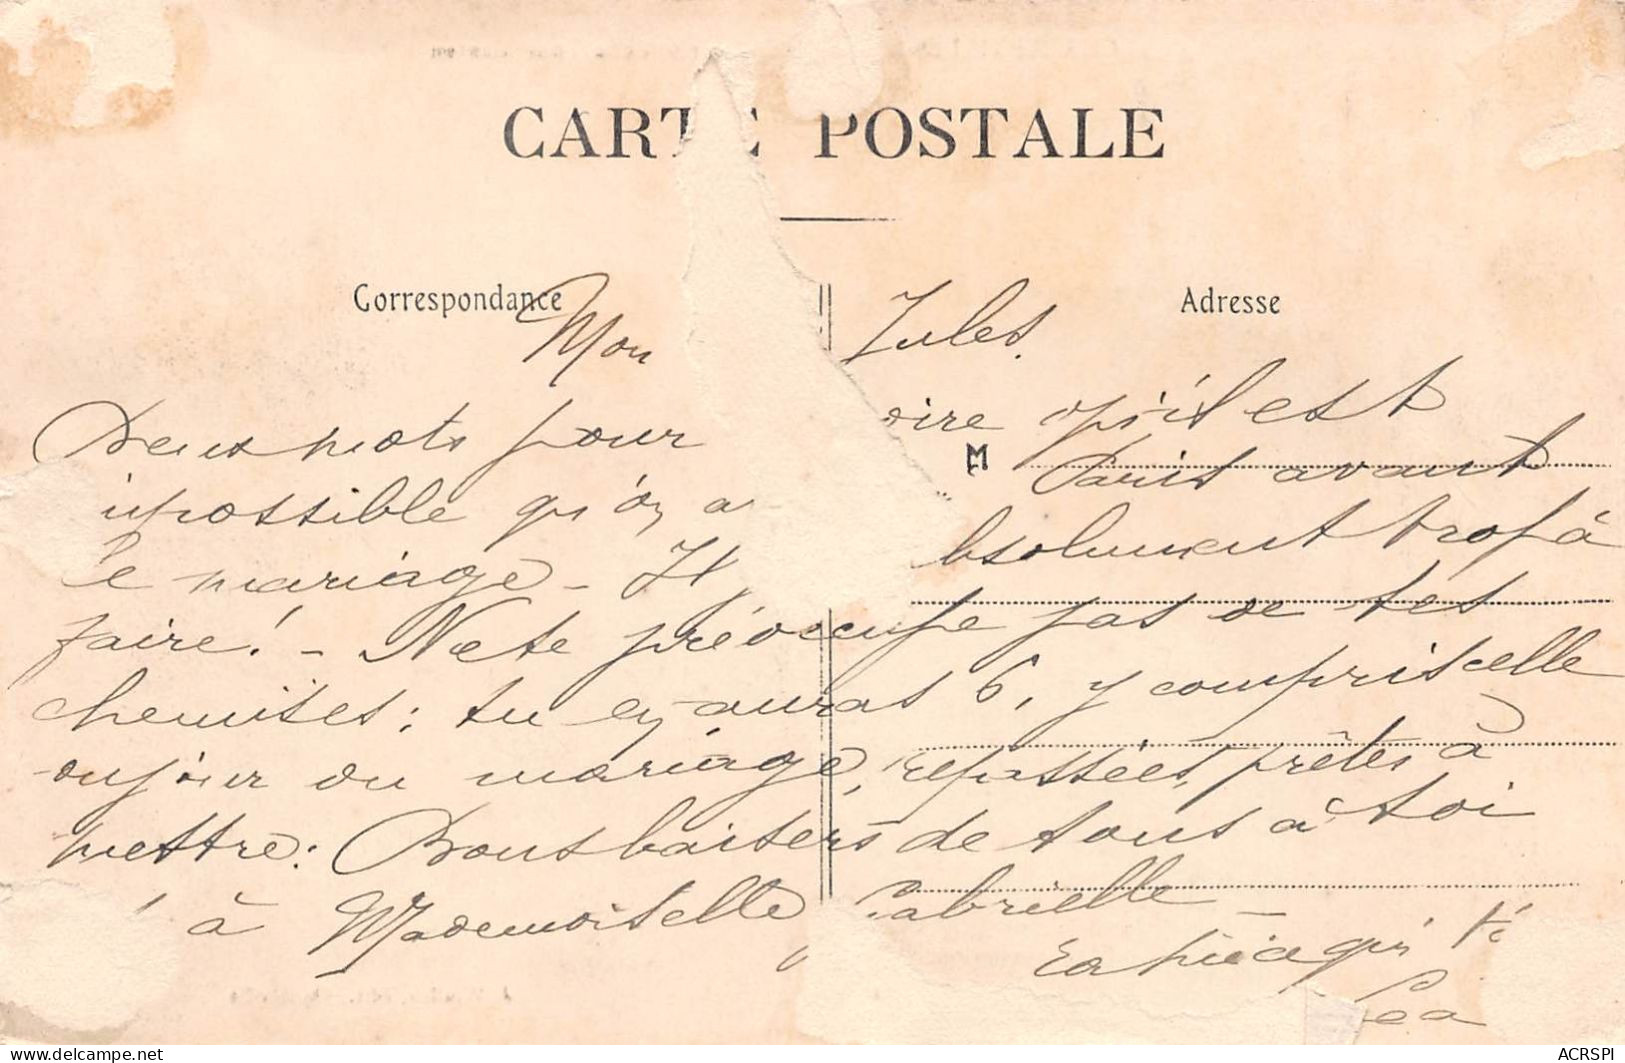 CARTE POSTALE
Correspondance
Adresse
Mon Jules.
Deux mots pour oire qu'il est
M
impossible qu'on a Paris avant
le mariage - Il bsolument trop à
faire! - Ne te préoccupe pas de tes
chemises; tu en auras 6, y compris celle
oujour du mariage, repassées, prêtes à
mettre: Bons baisers de tous à toi
à Mademoiselle Gabrielle -
qui t'
Léa
ACRSPI